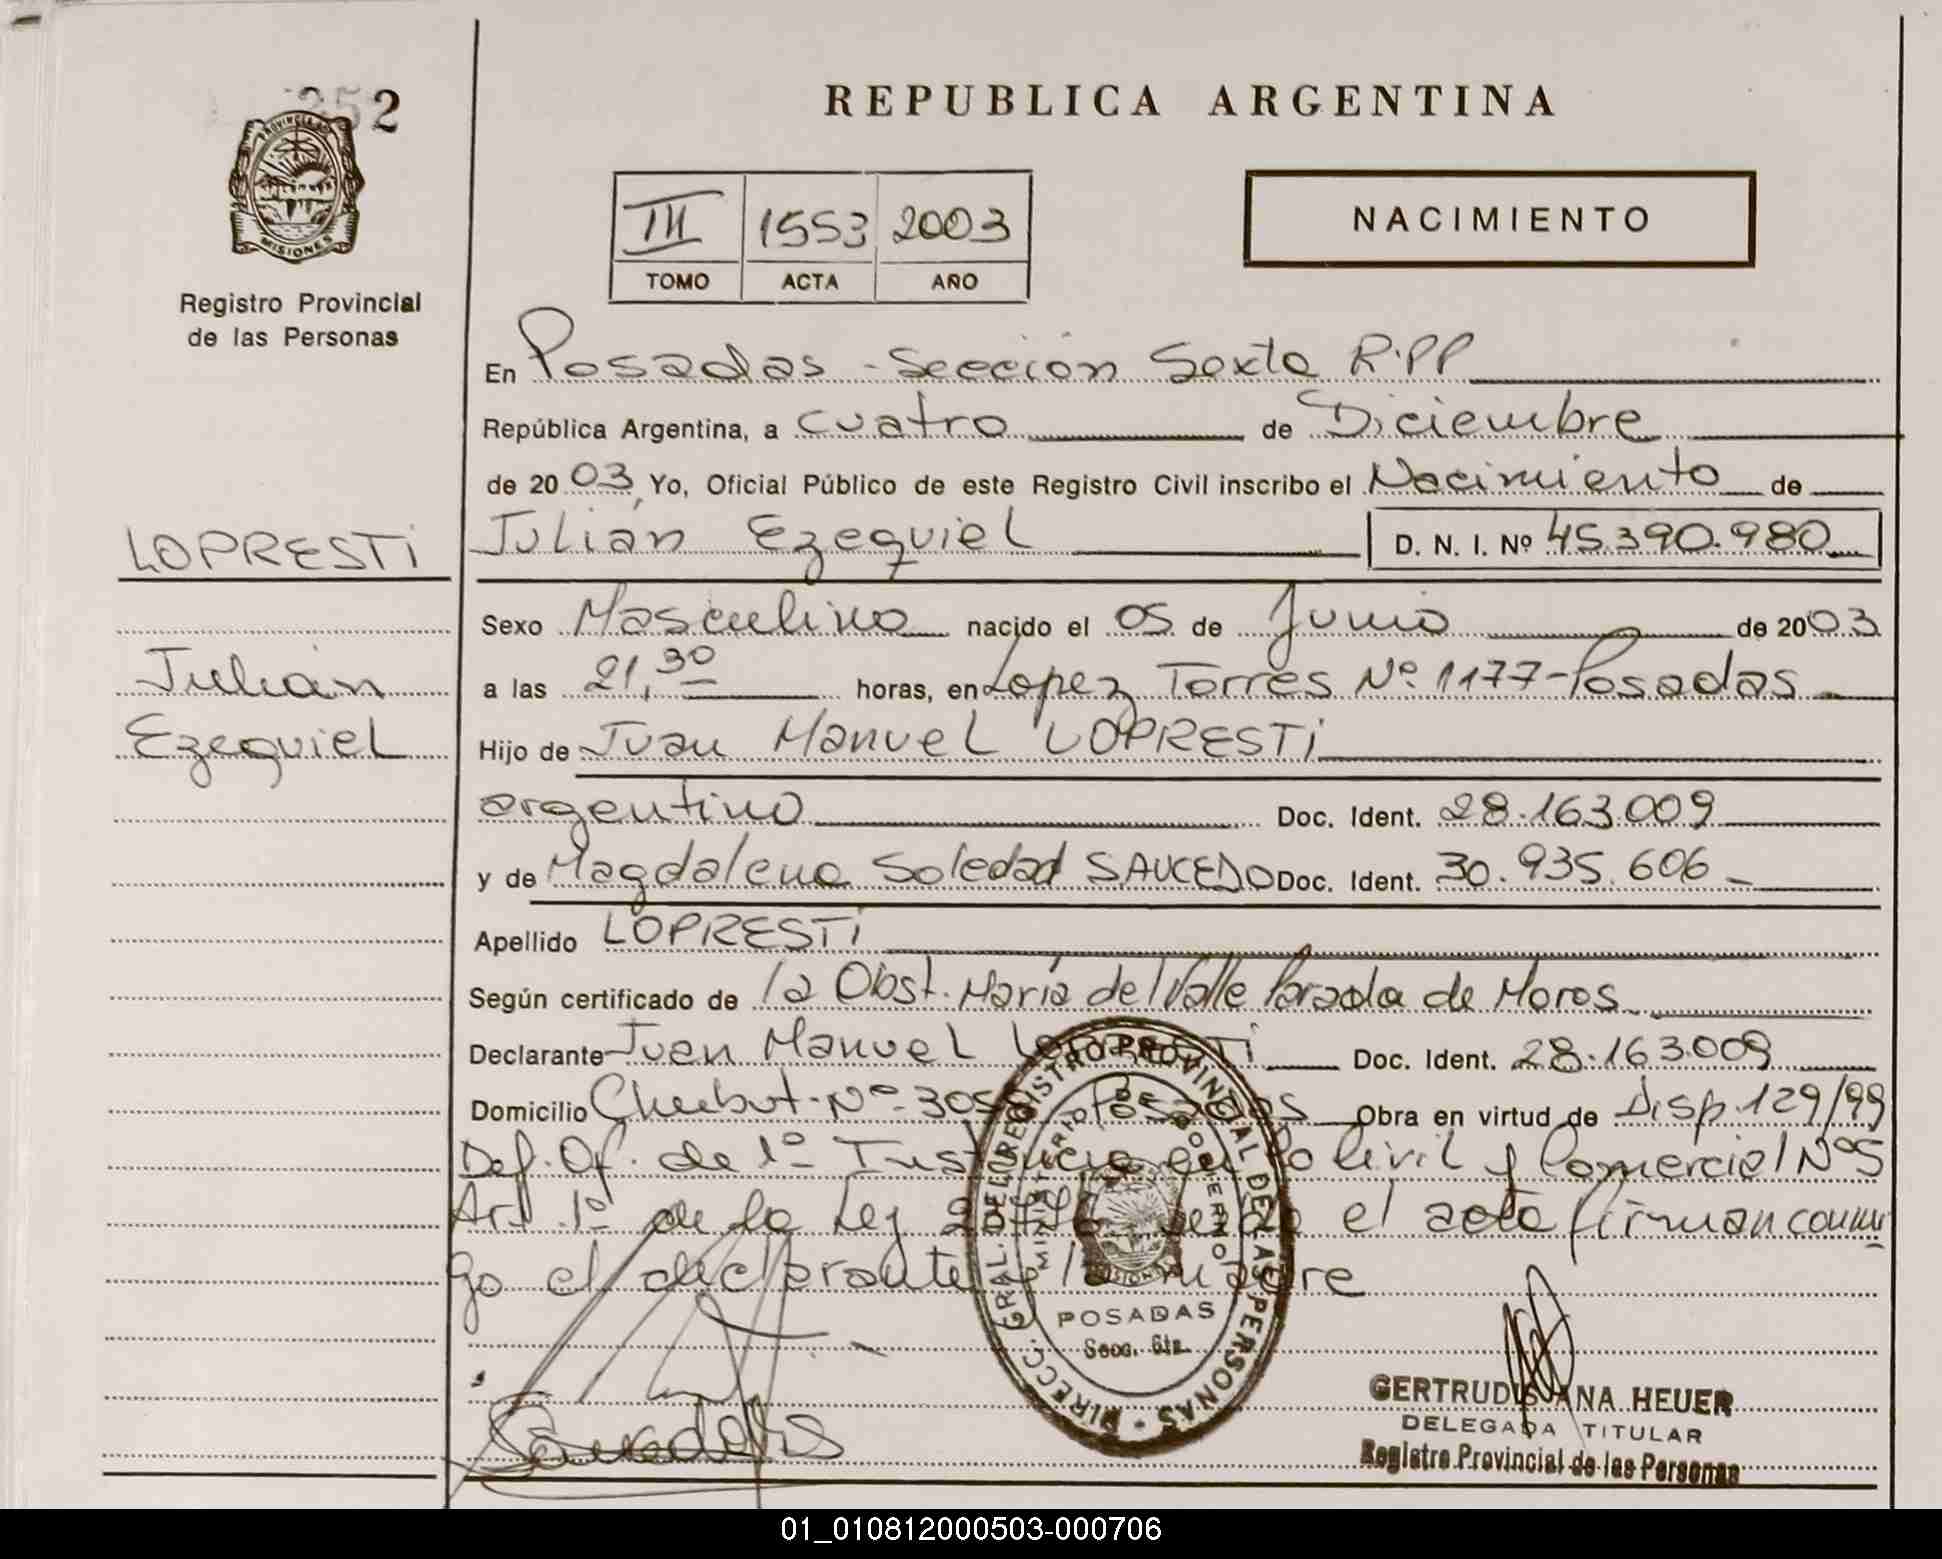 252
PROVINCIA DE
MISIONES
Registro Provincial
de las Personas
LOPRESTI
Julián
Ezequiel
REPUBLICA ARGENTINA
III 1553 2003
TOMO ACTA AÑO
NACIMIENTO
En Posadas - Sección Sexta R.PP
República Argentina, a cuatro de Diciembre
de 2003, Yo, Oficial Público de este Registro Civil inscribo el Nacimiento de
Julián Ezequiel D. N. I. Nº 45.390.980
Sexo Masculino nacido el 05 de Junio de 2003
a las 21,30 horas, en Lopez Torres Nº 1177-Posadas
Hijo de Juan Manuel LOPRESTI
argentino Doc. Ident. 28.163.009
y de Magdalena Soledad SAUCEDO Doc. Ident. 30.935.606
Apellido LOPRESTI
Según certificado de la Obst. María del Valle Parada de Moros
Declarante Juan Manuel LOPRESTI Doc. Ident. 28.163.009
Domicilio Chubut-Nº-305 Posadas Obra en virtud de Disp.129/99
Def. Of. de 1º Instancia en lo Civil y Comercial Nº5
Art 1º de la Ley el acta firman conmi
go el declarante y la madre
DIRECC. GRAL. DEL REGISTRO PROVINCIAL DE LAS PERSONAS
MINISTERIO DE GOBIERNO
MISIONES
POSADAS
Secc. 6ta.
GERTRUDIS ANA HEUER
DELEGADA TITULAR
Registro Provincial de las Personas
01_010812000503-000706